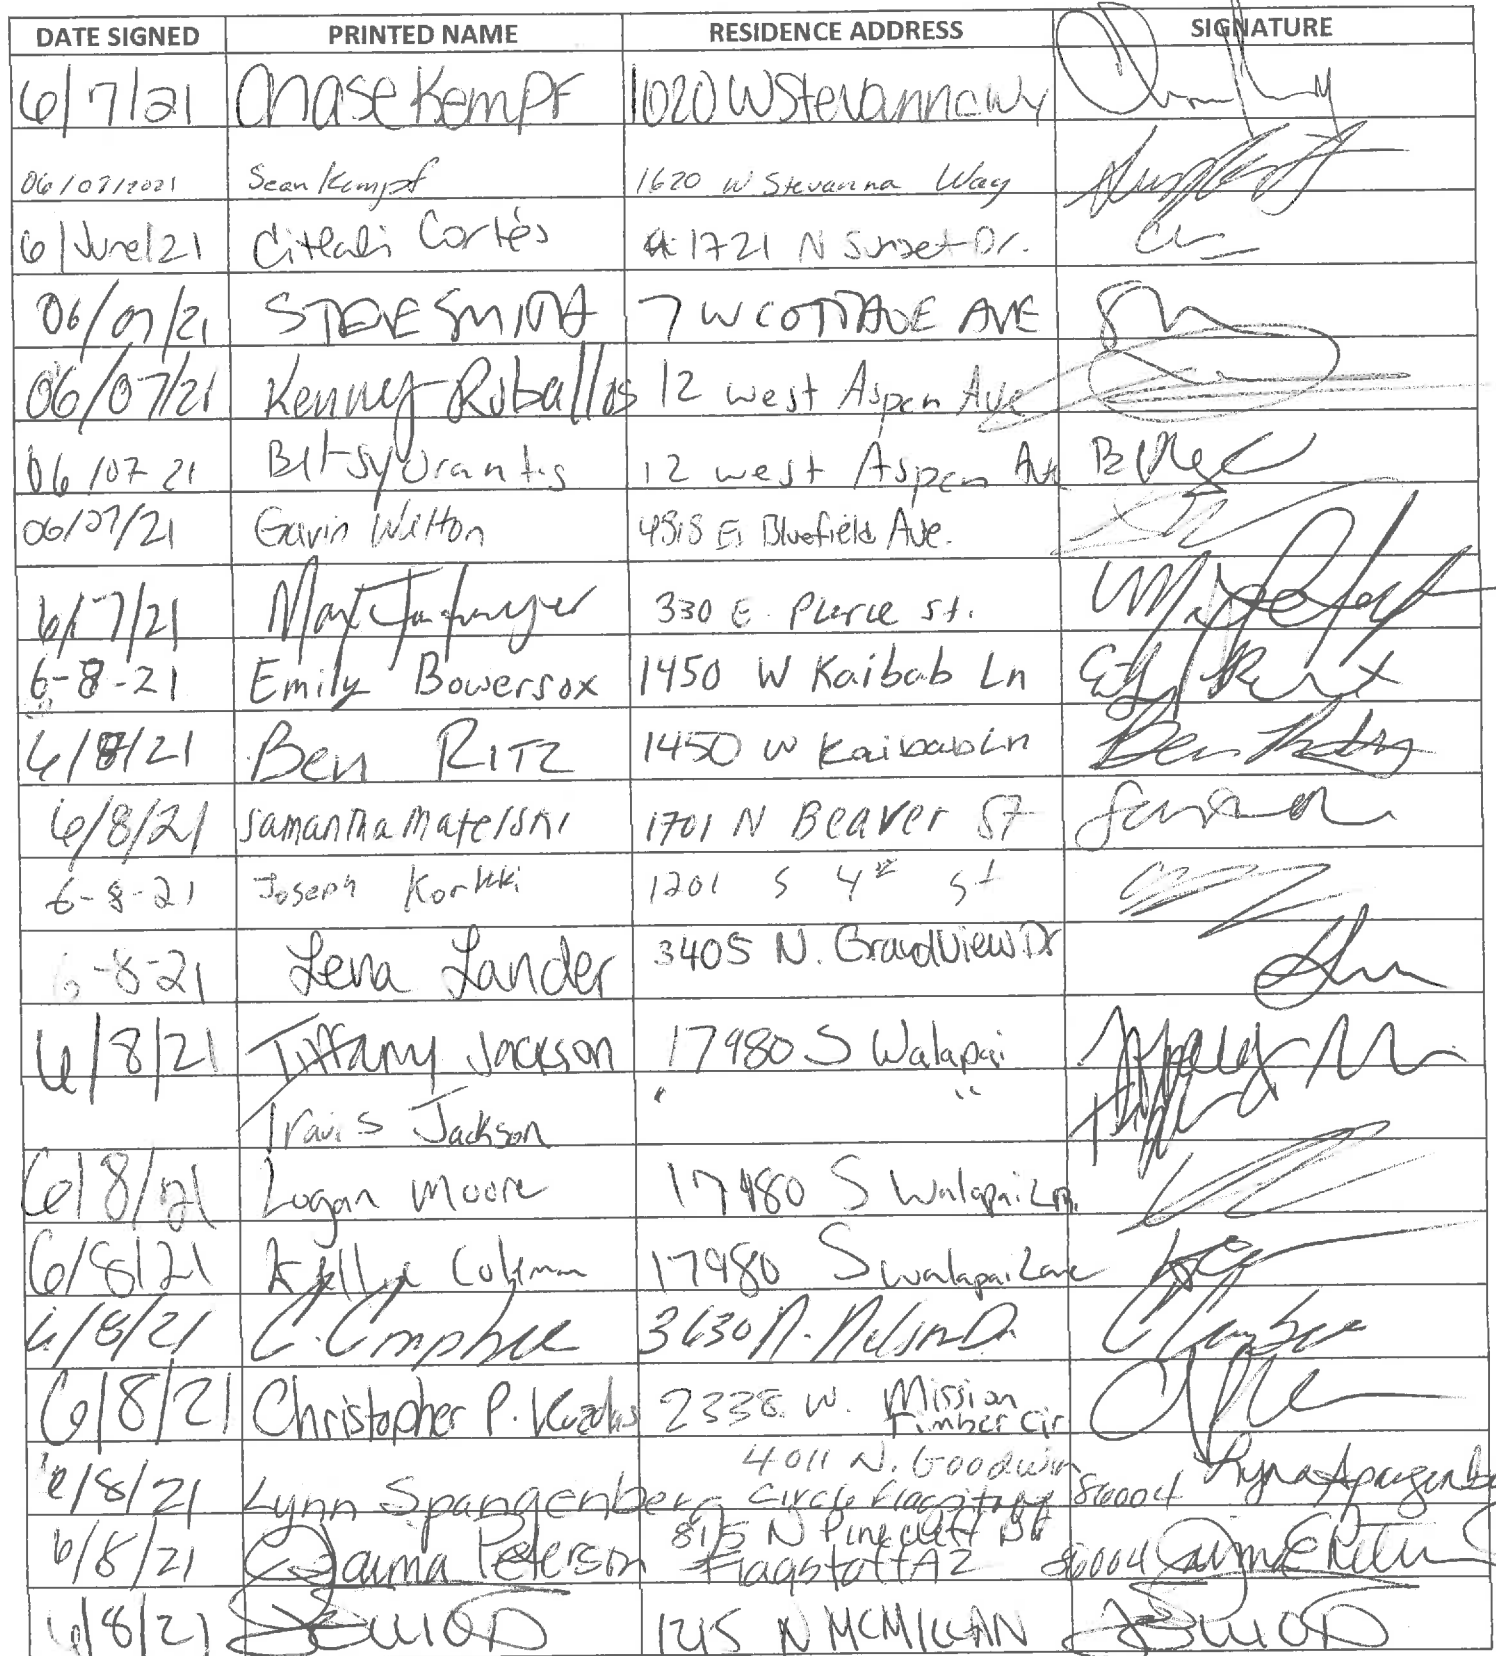 DATE SIGNED PRINTED NAME RESIDENCE ADDRESS SIGNATURE
6/7/21 Chase Kempf 1020 W Stevanna Wy
06/07/2021 Sean Kempf 1620 W Stevanna Way
6/June/21 Citlali Cortés 1721 N Sunset Dr.
06/07/21 STEVE SMITH 7 W COTTAGE AVE
06/07/21 Kenny Roballos 12 west Aspen Ave
06/07 21 Bitsy 12 west Aspen Ave
06/07/21 Gavin Wilton 4818 E. Bluefield Ave.
6/7/21 Max 330 E. Pierce St.
6-8-21 Emily Bowersox 1450 W Kaibab Ln
6/8/21 Ben RITZ 1450 W Kaibab Ln Ben Ritz
6/8/21 Samantha Matelski 1701 N Beaver St
6-8-21 Joseph Korkki 1201 S 4th St
6-8-21 Lena Lander 3405 N. Grandview Dr
6/8/21 Tiffany Jackson 17980 S Walapai
Travis Jackson " "
6/8/21 Logan Moore 17980 S Walapai Ln.
6/8/21 Coleman 17980 S Walapai Lane
6/8/21 C. 3630 N. Nelson Dr
6/8/21 Christopher P. 2338 W. Mission
Timber Cir
4011 N. Goodwin
6/8/21 Lynn Spangenberg Circle Flagstaff 86004 Lynn Spangenberg
815 N Pinecliff Dr
6/8/21 Jaima Peterson Flagstaff AZ 86004
6/8/21 1215 N MCMILLAN